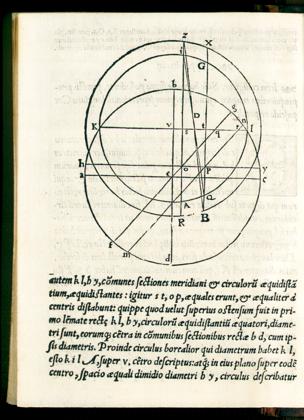 z
x
G
b
D
g
K
v
s
t
q
r
n
l
h
e
o
p
y
a
c
A
Q
R
B
f
m
d
autem k l, h y, cōmunes sectiones meridiani & circulorū æquidistā
tium, æquidistantes: igitur s t, o p, æquales erunt, & æqualiter à
centris distabunt: quippe quod uelut superius ostensum fuit in pri
mo lēmate rectę k l, h y, circulorū æquidistantiū æquatori, diame
tri sunt, eorumq; cētra in cōmunibus sectionibus rectæ b d, cum ip-
sis diametris. Proinde circulus borealior qui diametrum habet k l,
esto k i l A, super v, cētro descriptus: atq; in eius plano super eodē
centro, spacio æquali dimidio diametri h y, circulus describatur